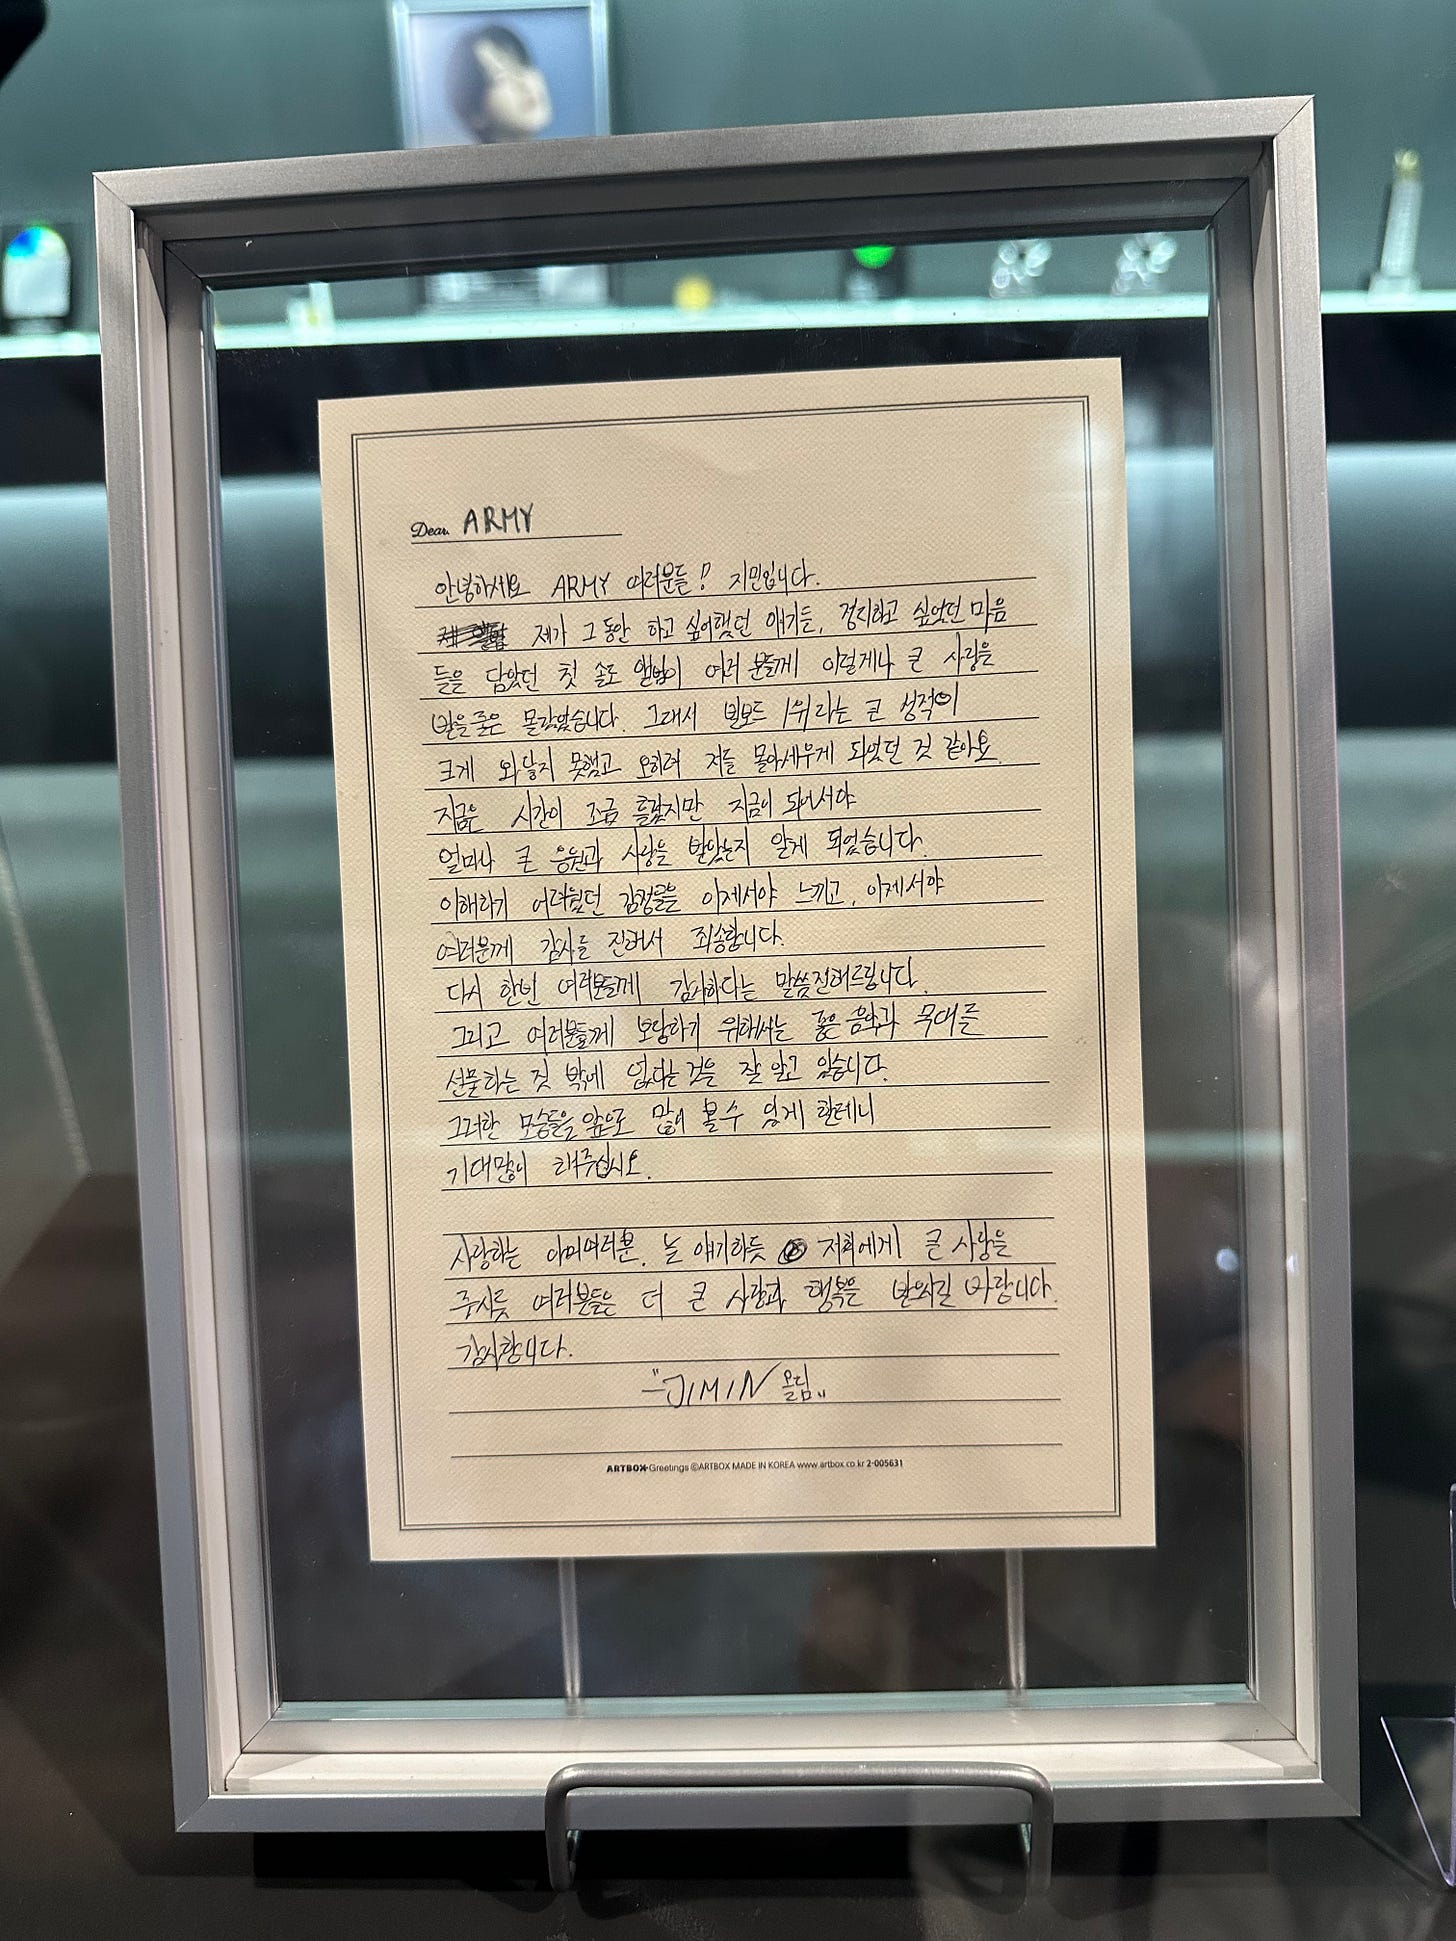 Dear. ARMY
안녕하세요 ARMY 여러분들! 지민입니다.
제가 그동안 하고 싶어했던 얘기들, 정리하고 싶었던 마음
들을 담았던 첫 솔로 앨범이 여러분들께 이렇게나 큰 사랑을
받을줄은 몰랐었습니다. 그래서 빌보드 1위라는 큰 성적이
크게 와닿지 못했고 오히려 저를 몰아세우게 되었던 것 같아요.
지금은 시간이 조금 흘렀지만 지금이 되어서야
얼마나 큰 응원과 사랑을 받았는지 알게 되었습니다.
이해하기 어려웠던 감정들을 이제서야 느끼고, 이제서야
여러분께 감사를 전해서 죄송합니다.
다시 한번 여러분들께 감사하다는 말씀전해드립니다.
그리고 여러분들께 보답하기 위해서는 좋은 음악과 무대를
선물하는 것 밖에 없다는 것을 잘 알고 있습니다.
그러한 모습들을 앞으로 많이 볼 수 있게 할테니
기대많이 해주십시오.
사랑하는 아미여러분. 늘 얘기하듯 저희에게 큰 사랑을
주시듯 여러분들은 더 큰 사랑과 행복을 받으시길 바랍니다.
감사합니다.
"JIMIN 올림"
ARTBOX Greetings ©ARTBOX MADE IN KOREA www.artbox.co.kr 2-005631